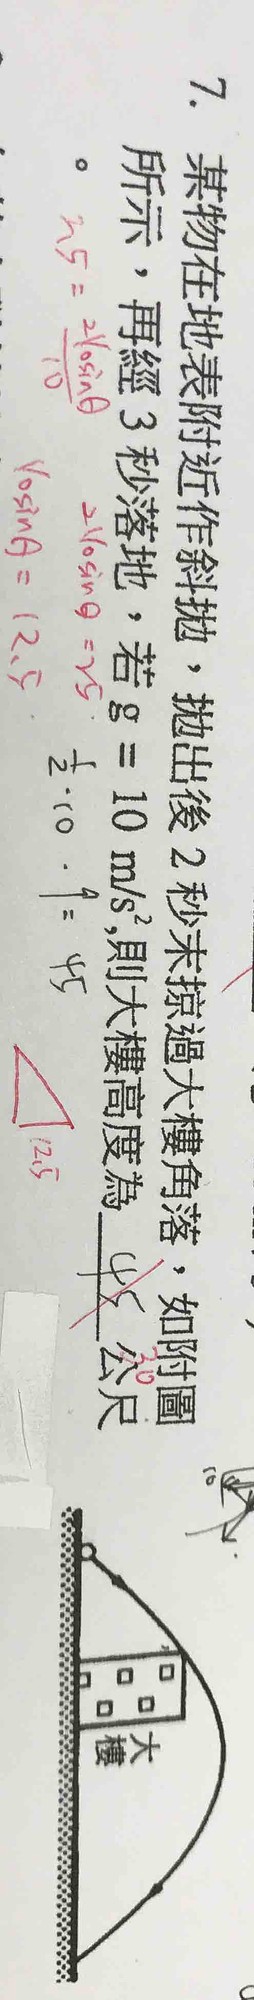 7. 某物在地表附近作斜拋，拋出後 2 秒末掠過大樓角落，如附圖
所示，再經 3 秒落地，若 g = 10 m/s²,則大樓高度為 45 公尺
30
。
2.5 = 2V₀sinθ/10
2V₀sinθ = 25
½·10·9 = 45
V₀sinθ = 12.5
12.5
10
大樓